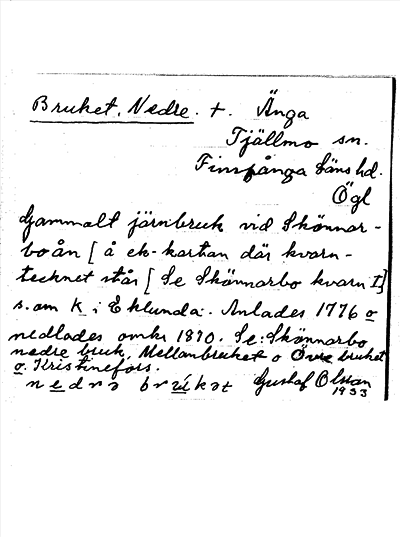 Bruket, Nedre. +. Änga
Tjällmo sn.
Finspånga läns hd.
Ögl
Gammalt järnbruk vid Skönnar-
boån [å ek-kartan där kvarn-
tecknet står [Se Skönnarbo kvarn I]
s.om K i Eklunda. Anlades 1776 o
nedlades omkr 1890. Se: Skönnarbo
nedre bruk, Mellanbruket o Övre bruket
o. Kristinefors.
nedrə brúkət Gustaf Olsson
1933